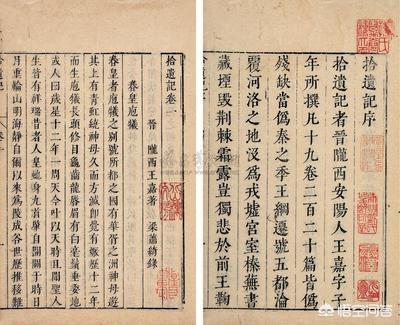 拾遺記序
拾遺記者晉隴西安陽人王嘉字子
年所撰凡十九卷二百二十篇皆爲
殘缺當僞秦之季王綱遷號五都淪
覆河洛之地沒爲戎墟宮室榛蕪書
藏堙毀荆棘霜露豈獨悲於前王鞠
拾遺記卷一
晉 隴西王嘉著 梁蕭綺錄
春皇庖犧
春皇者庖犧之別號所都之國有華胥之洲神母遊
其上有青虹繞神母久而方滅卽覺有娠歷十二年
而生庖犧長頭修目龜齒龍唇眉有白毫鬚垂委地
或人曰歲星十二年一周天今叶以天時且聞聖人
生皆有祥瑞昔者人皇蛇身九首肇自開闢于時日
月重輪山明海靜自爾以來爲陵成谷世歷推移難
悟空问答